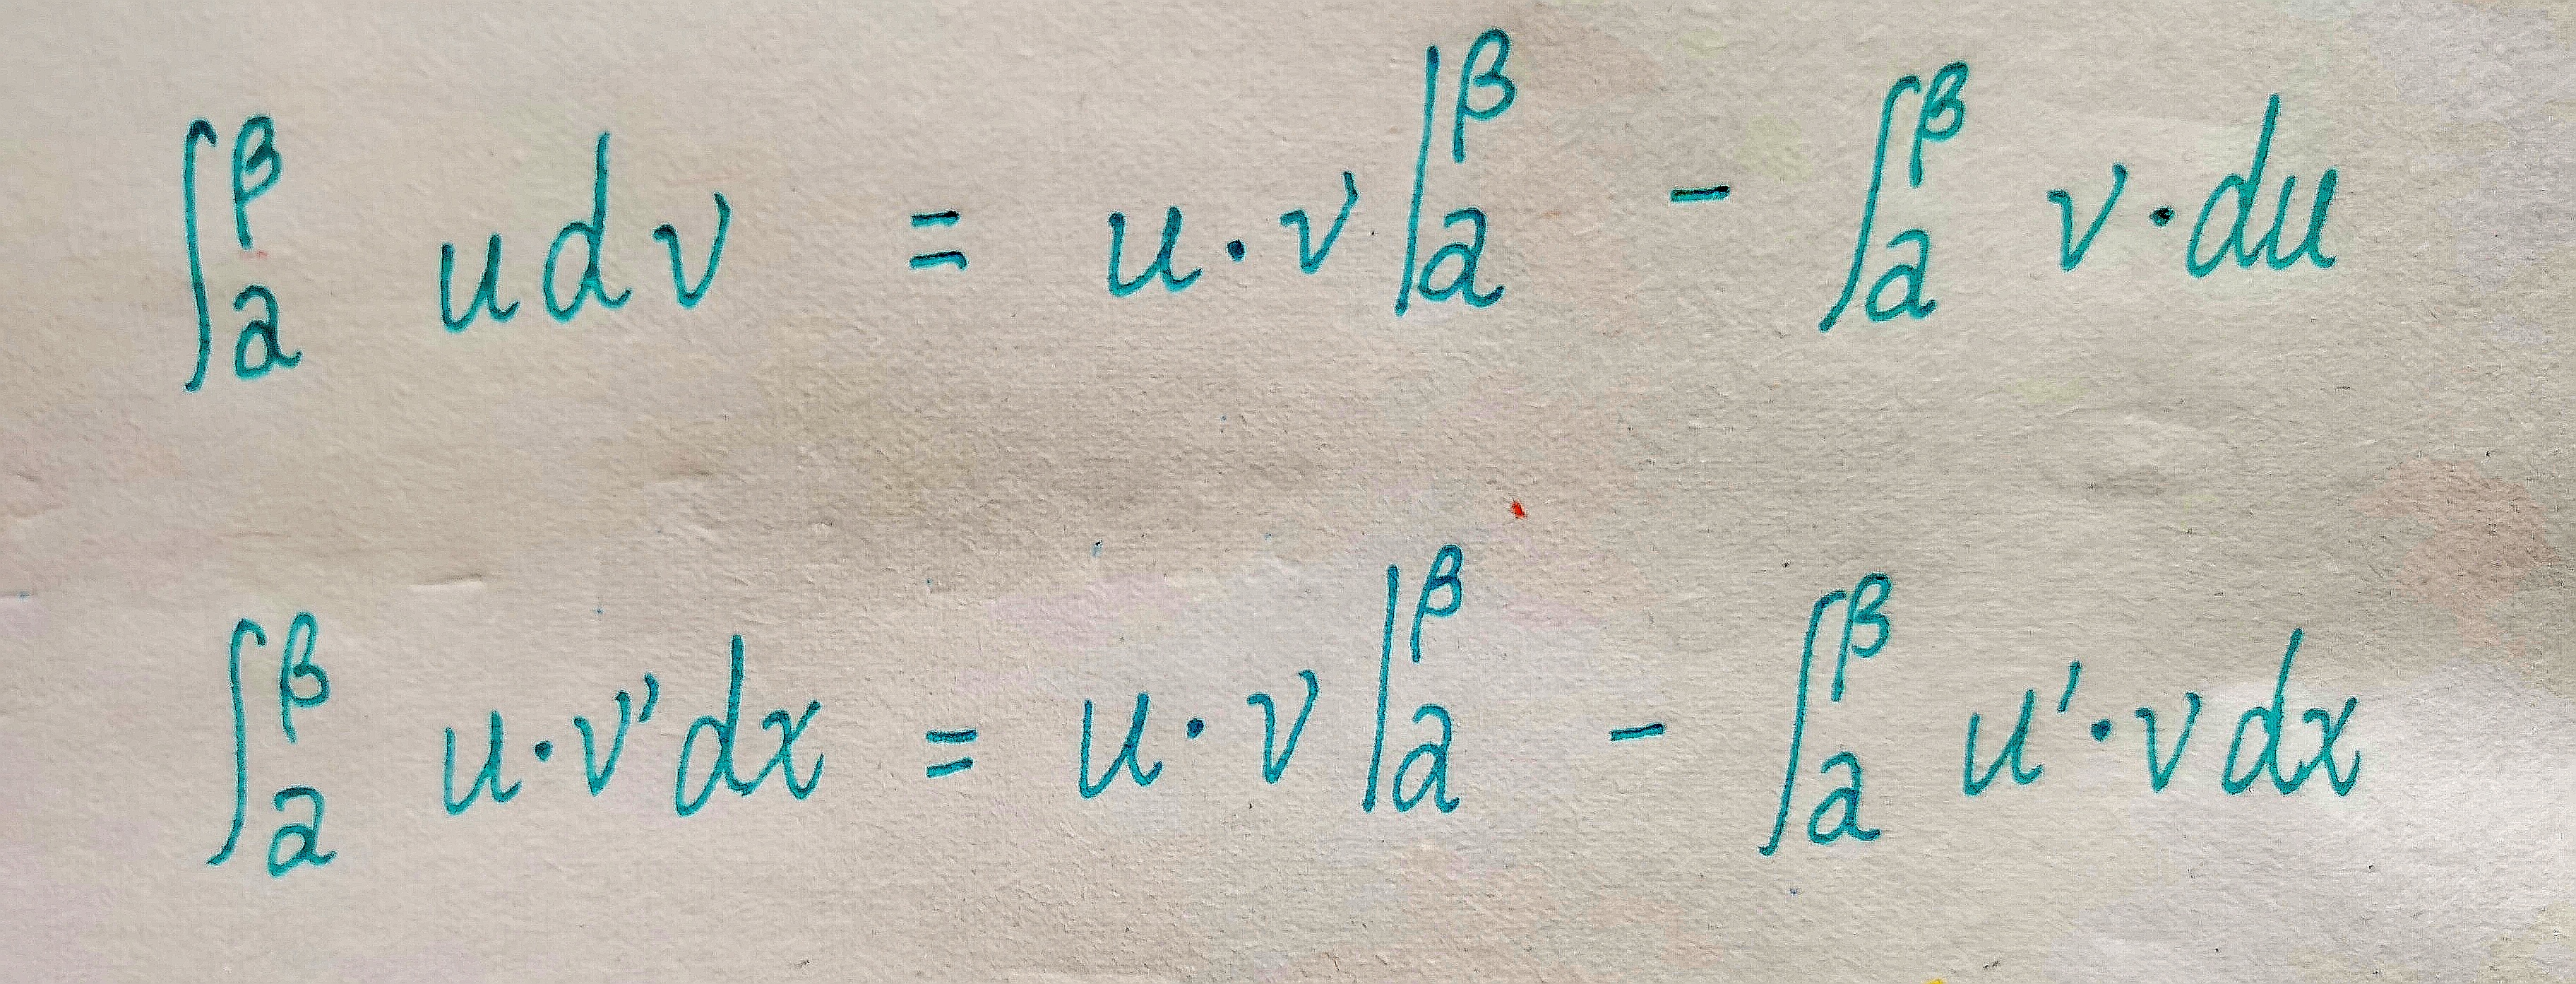 ∫ₐᵝ u d v = u · v |ₐᵝ - ∫ₐᵝ v · du
∫ₐᵝ u · v' dx = u · v |ₐᵝ - ∫ₐᵝ u' · v dx